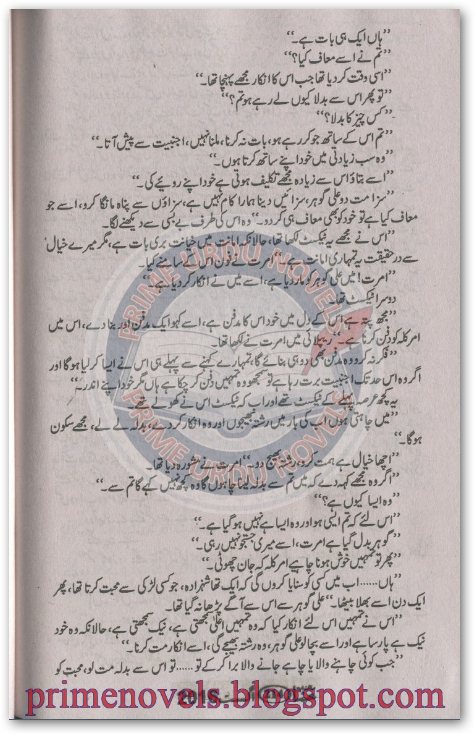 ”ہاں ایک ہی بات ہے۔“
”تم نے اسے معاف کیا؟“
”اسی وقت کر دیا تھا جب اس کا انکار مجھے پہنچا تھا۔“
”تو پھر اس سے بدلا کیوں لے رہے ہو تم؟“
”کس چیز کا بدلا؟“
”تم اس کے ساتھ جو کر رہے ہو، بات نہ کرنا، ملنا نہیں، اجنبیت سے پیش آنا۔“
”وہ سب زیادتی میں خود اپنے ساتھ کرتا ہوں۔“
”اسے بتاؤ اس سے زیادہ مجھے تکلیف ہوتی ہے خود اپنے رویئے کی۔“
”سزا مت دو علی گوہر، سزائیں دینا ہمارا کام نہیں ہے، سزاؤں سے پناہ مانگا کرو، اسے جو
معاف کیا ہے تو خود کو بھی معاف ہی کر دو۔“ وہ اس کی طرف بے بسی سے دیکھنے لگا۔
”اس نے مجھے یہ ٹیکسٹ لکھا تھا، حالانکہ امانت میں خیانت بری بات ہے، مگر میرے خیال
سے درحقیقت یہ تمہاری امانت ہے۔“ امرت نے فون اس کے سامنے کیا۔
”امرت! میں علی گوہر کو مار دیا ہے، اسے میں نے انکار کر دیا ہے۔“
دوسرا ٹیکسٹ تھا۔
”مجھے پتہ ہے اس کے دل میں خود اس کا مدفن ہے، اسے کہو ایک مدفن اور بنا دے، اس میں
امرکلہ کو دفن کرنا ہے۔“ ریپلائی میں امرت نے لکھا تھا۔
”فکر نہ کرو وہ مدفن بھی وہ ہی بنائے گا، تمہارے کہنے سے پہلے ہی اس نے ایسا کر لیا ہو گا اور
اگر وہ اس حد تک اجنبیت برت رہا ہے تو سمجھو وہ تمہیں دفن کر چکا ہے ہاں مگر خود اپنے اندر۔“
یہ کچھ عرصہ پہلے کے ٹیکسٹ تھے اور اب کہ ٹیکسٹ اس نے کھولے تھے۔
”میں چاہتی ہوں اب کی بار میں رشتہ بھیجوں اور وہ انکار کر دے، بدلہ لے لے، مجھے سکون
ہو گا۔“
”اچھا خیال ہے ہمت کرو، رشتہ بھیج دو۔“ امرت نے مشورہ دیا تھا۔
”اگر وہ مجھے کہہ دے کہ میں تم سے بدلہ لینا چاہوں گا وہ کچھ نہیں کہے گا تم سے۔“
”وہ ایسا کیوں ہے؟“
”اس لئے کہ تم ایسی ہو اور وہ ایسا ہے نہیں ہو گیا ہے۔“
”گوہر بدل گیا ہے امرت، اسے میری جستجو نہیں رہی۔“
”پھر تو تمہیں خوش ہونا چاہیے امرکلہ کہ جان چھوٹی۔“
”ہاں...... اب میں کسی کو سنایا کروں گی کہ ایک تھا شہزادہ، جو کسی لڑکی سے محبت کرتا تھا، پھر
ایک دن اسے بھلا بیٹھا۔“ علی گوہر سے اس سے آگے پڑھا نہ گیا تھا۔
”اس نے تمہیں اس لئے انکار کیا کہ وہ تمہیں اعلیٰ سمجھتی ہے، نیک سمجھتی ہے، حالانکہ وہ خود
نیک ہے پارسا ہے اور اسے بچا لو علی گوہر، وہ رشتہ بھیجے گی، اسے انکار مت کرنا۔“
”جب کوئی چاہنے والا یا چاہے جانے والا برا کرے تو...... تو اس سے بدلہ مت لو، محبت کو
PRIME URDU NOVELS
PRIME URDU NOVELS
primenovels.blogspot.com